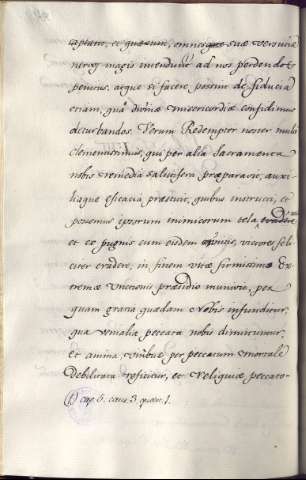 captant, et quærunt, omnesque suæ versutiæ
nervos magis intendunt ad nos perdendos
penitus, atque si facere possint de fiducia
etiam, qua divinæ misericordiæ confidimus
deturbandos. Verum Redemptor noster
clementissimus, qui per alia Sacramenta
nobis remedia salutifera præparavit, auxi-
liaque eficacia præstitit, quibus instructi, et
possemus ipsorum inimicorum tela evadere
et eo pugnis cum eisdem victores feli-
citer evadere, in finem vitæ firmissimo Ex-
tremæ Unctionis præsidio munivit, per
quam gratia quædam nobis infunditur,
qua venialia peccata nobis dimittuntur,
et anima, viribus per peccatum mortale
debilitata reficitur, et reliquiæ peccato-
(1) cap. 6. 3 quæst. 1.